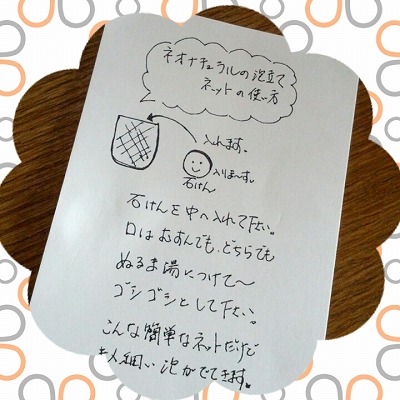 ネオナチュラルの泡立て
ネットの使い方
入れます。
入りまーす。
石けん
石けんを中へ入れて下さい。
口はむすんでも、どちらでも
ぬるま湯につけて〜
ゴシゴシとして下さい。
こんな簡単なネットだけで
きめ細い泡がでてきます。